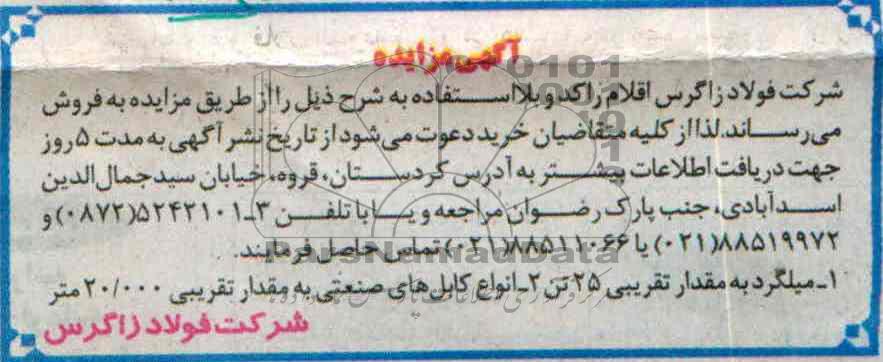 آگهی مزایده
شرکت فولاد زاگرس اقلام راکد و بلااستفاده به شرح ذیل را از طریق مزایده به فروش
می‌رساند. لذا از کلیه متقاضیان خرید دعوت می‌شود از تاریخ نشر آگهی به مدت ۵ روز
جهت دریافت اطلاعات بیشتر به آدرس کردستان، قروه، خیابان سید جمال‌الدین
اسدآبادی، جنب پارک رضوان مراجعه و یا با تلفن ۳-۵۲۴۳۱۰۱(۰۸۷۲) و
۸۸۵۱۹۹۷۲(۰۲۱) یا ۸۸۵۱۱۰۶۶(۰۲۱) تماس حاصل فرمایند.
ParsNamadData
۱-میلگرد به مقدار تقریبی ۲۵ تن ۲-انواع کابل‌های صنعتی به مقدار تقریبی ۲۰/۰۰۰ متر
شرکت فولاد زاگرس